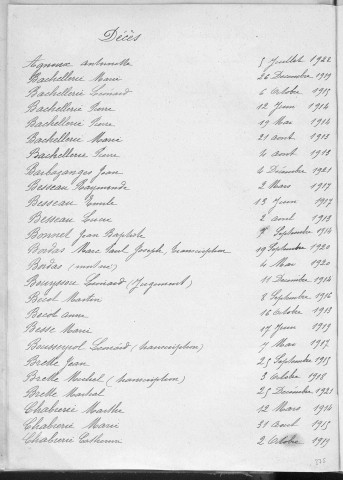 Décès
Agneux Antoinette 5 Juillet 1922
Bachellerie Marie 26 Décembre 1919
Bachellerie Léonard 6 Octobre 1915
Bachellerie Pierre 12 Juin 1914
Bachellerie Pierre 19 Mai 1914
Bachellerie Marie 21 août 1913
Bachellerie Pierre 4 août 1913
Barbazanges Jean 6 Décembre 1921
Besseau Raymonde 2 Mars 1917
Besseau Emile 13 Juin 1917
Besseau 2 avril 1913
Bonnel Jean Baptiste Septembre 1914
Bordas Marc Paul Joseph, transcription 19 Septembre 1920
Bordas (mention) 4 Mai 1920
Bouyssou Léonard (Jugement) 11 Décembre 1914
Bécot Martin 8 Septembre 1916
Becot anne 16 Octobre 1913
Besse Marie 17 Juin 1919
Bousseyrol Léonard (transcription) 7 Mai 1917
Brette Jean 25 Septembre 1915
Brette Michel (transcription) 3 Octobre 1918
Brette Martial 25 Décembre 1921
Chabrerie Marthe 12 Mars 1914
Chabrerie Marie 31 août 1915
Chabrerie Catherine 2 Octobre 1919